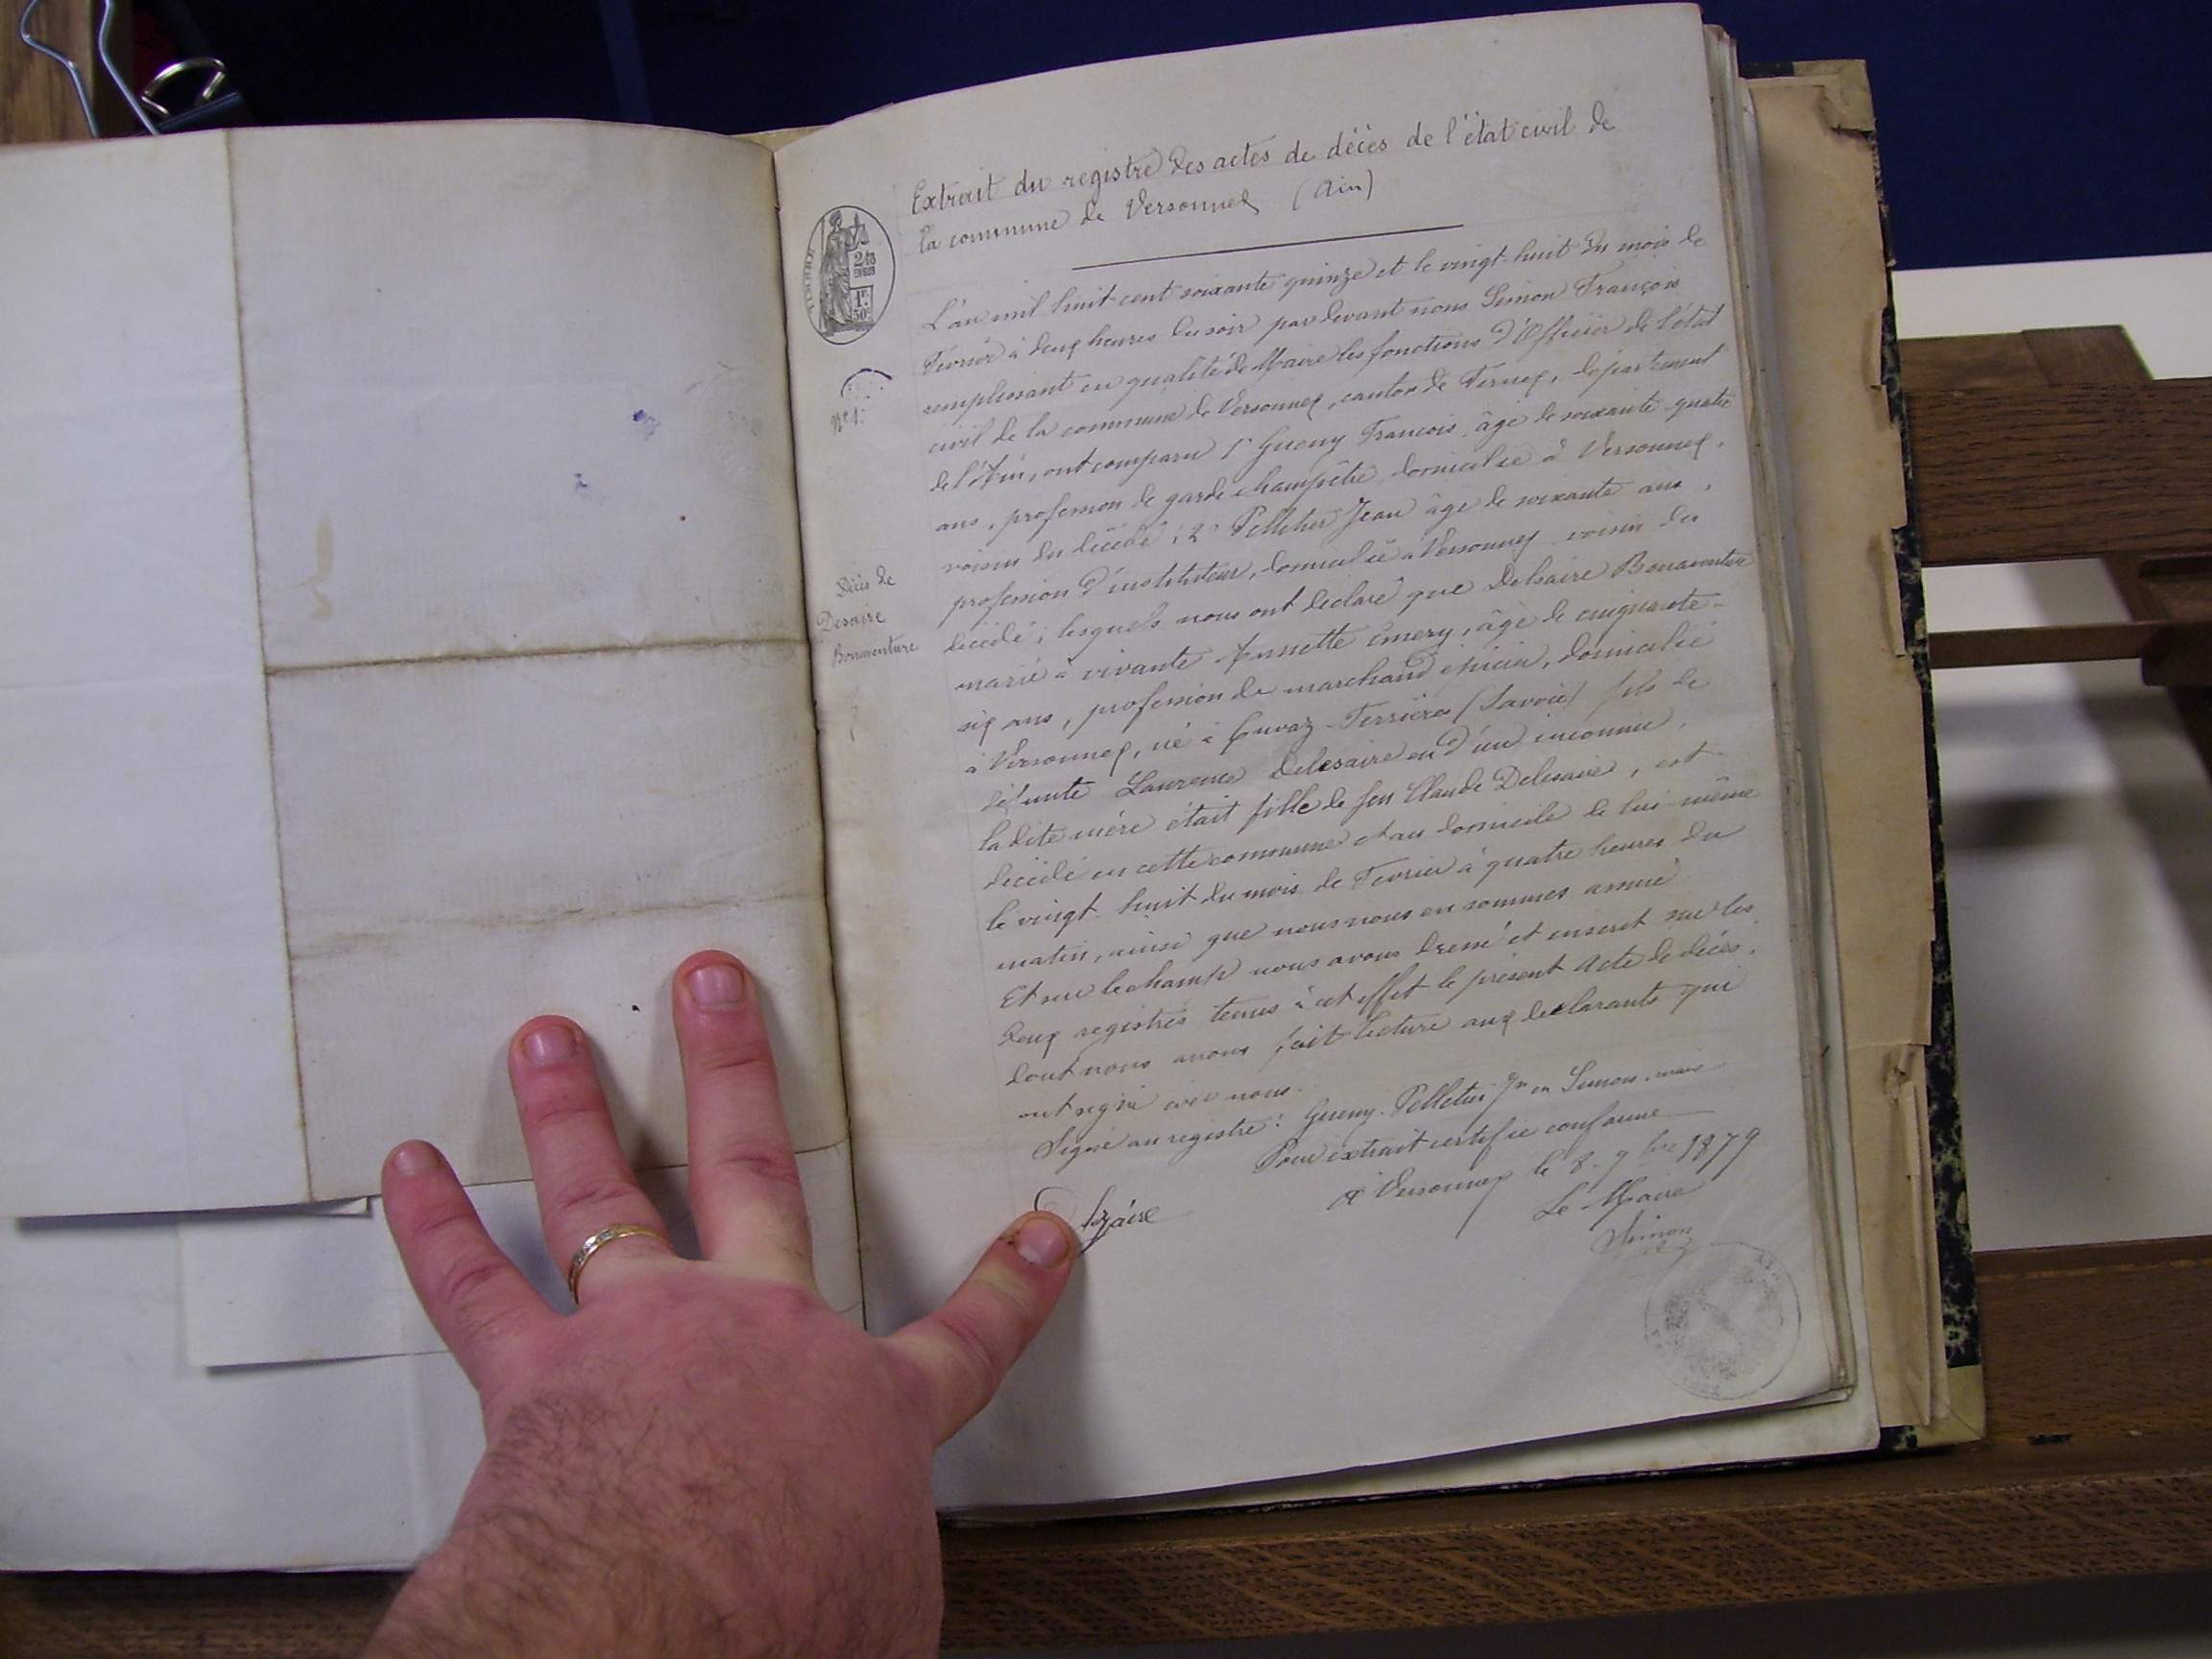 Extrait du registre des actes de décès de l'état civil de
la commune de Versonnex (Ain)
2/10
EN SUS
1F
50c
L'an mil huit cent soixante quinze et le vingt-huit du mois de
Fevrier à deux heures du soir par devant nous Simon François
remplissant en qualité de Maire les fonctions d'Officier de l'état
civil de la commune de Versonnex, canton de Ferney, département
de l'Ain, ont comparu 1° Gueny François, âgé de soixante-quatre
ans, profession de garde champêtre, domicilié à Versonnex,
voisin du décédé; 2° Pelletier Jean âgé de soixante ans,
profession d'instituteur, domicilié à Versonnex voisin du
décédé; lesquels nous ont déclaré que Delsaire Bonaventure
marié à vivante Annette Emery, âgé de cinquante-
six ans, profession de marchand épicier, domicilié
à Versonnex, né à Cuvaz-Ferrières (Savoie) fils de
défunte Laurence Delesaire et d'un inconnu,
la dite mère était fille de feu Claude Delesaire, est
décédé en cette commune et au domicile de lui-même
le vingt-huit du mois de Fevrier à quatre heures du
matin, ainsi que nous nous en sommes assuré
Et sur le champ nous avons dressé et inscrit sur les
deux registres tenus à cet effet le présent acte de décès,
dont nous avons fait lecture aux déclarants qui
ont signé avec nous.
Signé au registre: Gueny. Pelletier Jn et Simon, maire
Pour extrait certifié conforme
à Versonnex le 8 9bre 1879
Le Maire
Simon
N°1.
Décès de
Desaire
Bonaventure